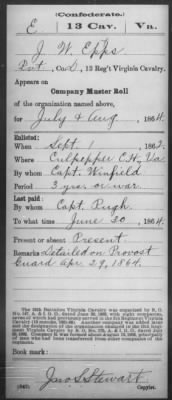 (Confederate.)
E 13 Cav. Va.
J. W. Epps
Pvt., Co. D, 13 Reg't Virginia Cavalry.
Appears on
Company Muster Roll
of the organization named above,
for July & Aug, 1864.
Enlisted:
When Sept. 1, 1862.
Where Culpepper C.H., Va
By whom Capt. Winfield
Period 3 years or war
Last paid:
By whom Capt. Pugh
To what time June 30, 1864.
Present or absent Present
Remarks Detailed on Provost
Guard Apr 29, 1864.
Book mark:
Jno S Stewart
(642) Copyist.